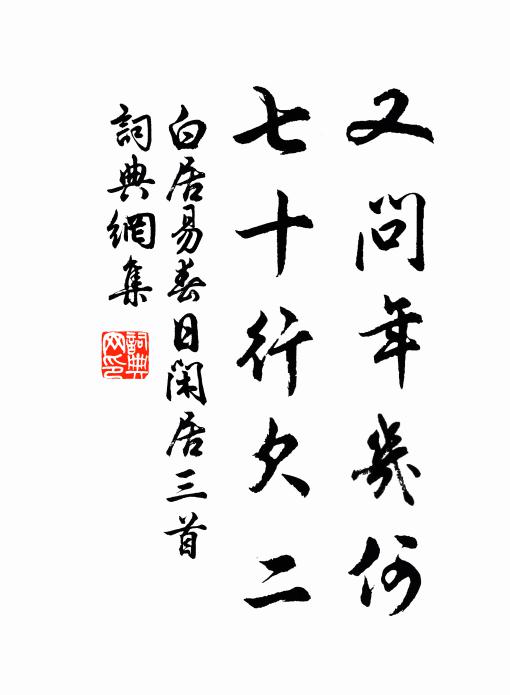 又問年幾何
七十行欠二
白居易春日閑居三首
詞典網集
詞典網印